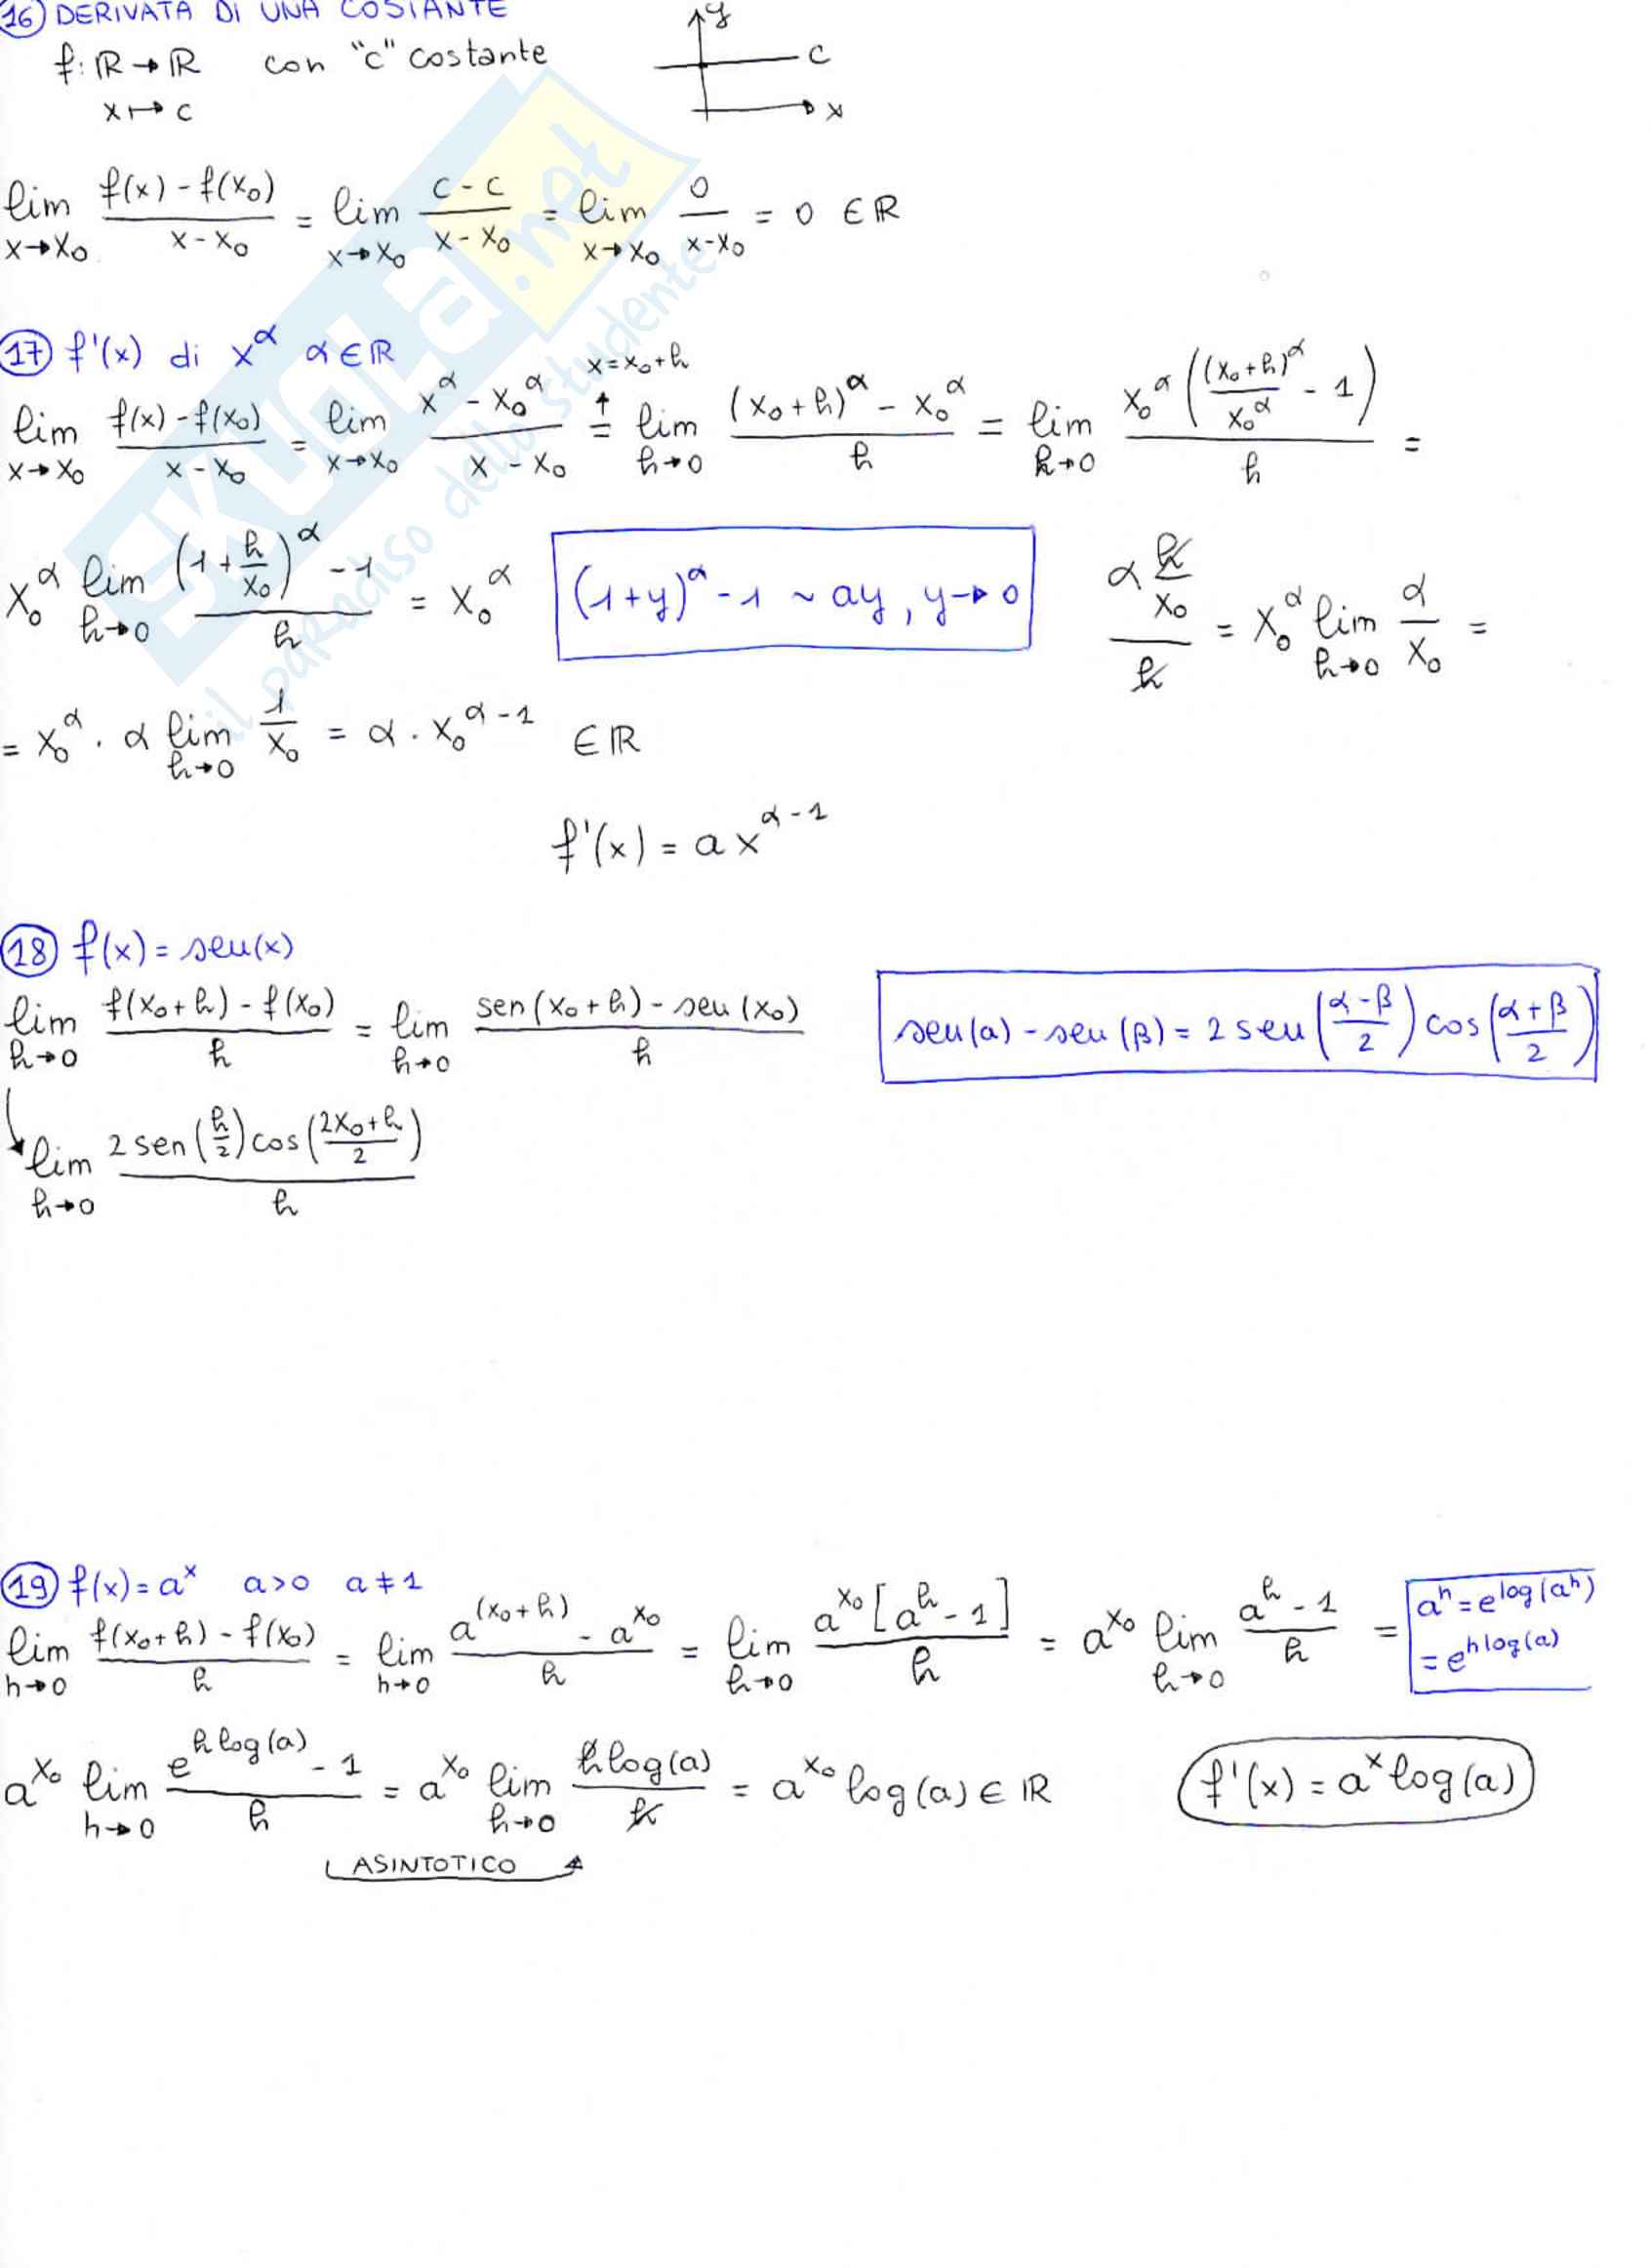 16 DERIVATA DI UNA COSTANTE
f: ℝ → ℝ con "c" costante
x ↦ c
y
c
x
lim x→x₀ (f(x) - f(x₀))/(x - x₀) = lim x→x₀ (c - c)/(x - x₀) = lim x→x₀ 0/(x-x₀) = 0 ∈ ℝ
17 f'(x) di x^α α ∈ ℝ
x = x₀ + h
lim x→x₀ (f(x) - f(x₀))/(x - x₀) = lim x→x₀ (x^α - x₀^α)/(x - x₀) = lim h→0 ((x₀ + h)^α - x₀^α)/h = lim h→0 x₀^α ((x₀+h)^α/x₀^α - 1)/h =
x₀^α lim h→0 ((1 + h/x₀)^α - 1)/h = x₀^α (1+y)^α - 1 ~ ay, y → 0 (α h/x₀)/h = x₀^α lim h→0 α/x₀ =
= x₀^α · α lim h→0 1/x₀ = α · x₀^(α-1) ∈ ℝ
f'(x) = a x^(α-1)
18 f(x) = sen(x)
lim h→0 (f(x₀+h) - f(x₀))/h = lim h→0 (sen(x₀+h) - sen(x₀))/h sen(a) - sen(β) = 2 sen((α-β)/2) cos((α+β)/2)
lim h→0 (2 sen(h/2) cos((2x₀+h)/2))/h
19 f(x) = a^x a>0 a≠1
lim h→0 (f(x₀+h) - f(x₀))/h = lim h→0 (a^(x₀+h) - a^x₀)/h = lim h→0 a^x₀ [a^h - 1]/h = a^x₀ lim h→0 (a^h - 1)/h = a^h = e^log(a^h)
= e^(h log(a))
a^x₀ lim h→0 (e^(h log(a)) - 1)/h = a^x₀ lim h→0 h log(a)/h = a^x₀ log(a) ∈ ℝ f'(x) = a^x log(a)
ASINTOTICO
SKUOLA.net
il paradiso dello studente